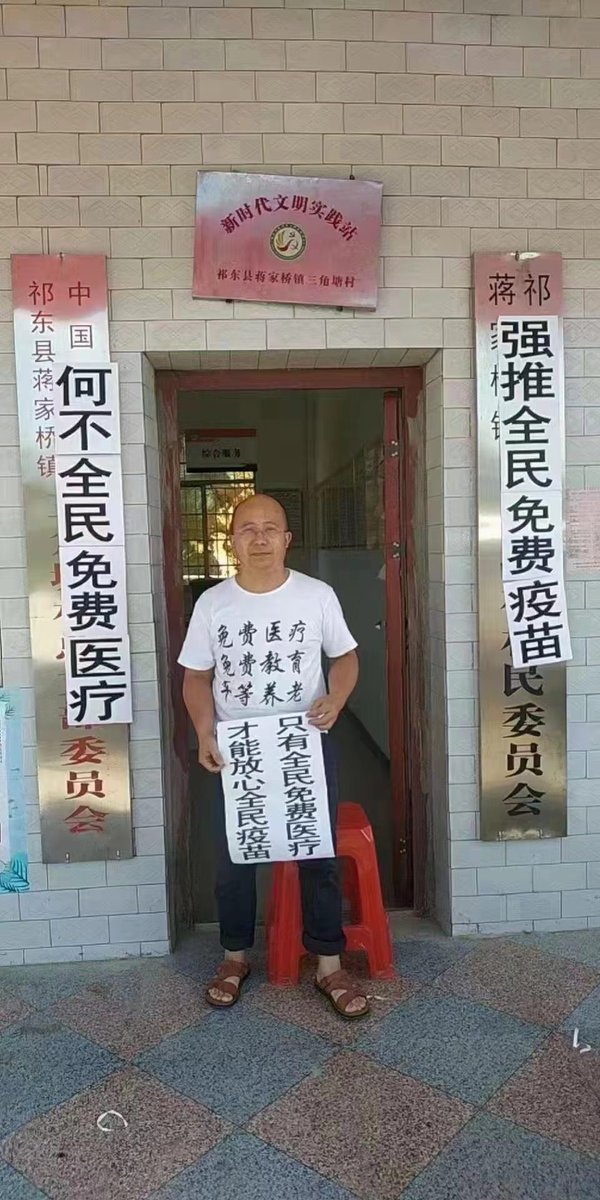 新时代文明实践站
祁东县蒋家桥镇三角塘村
中国
祁东县蒋家桥镇
委员会
何不全民免费医疗
祁
蒋家桥镇
民委员会
强推全民免费疫苗
综合服务
免费医疗
免费教育
平等养老
只有全民免费医疗
才能放心全民疫苗